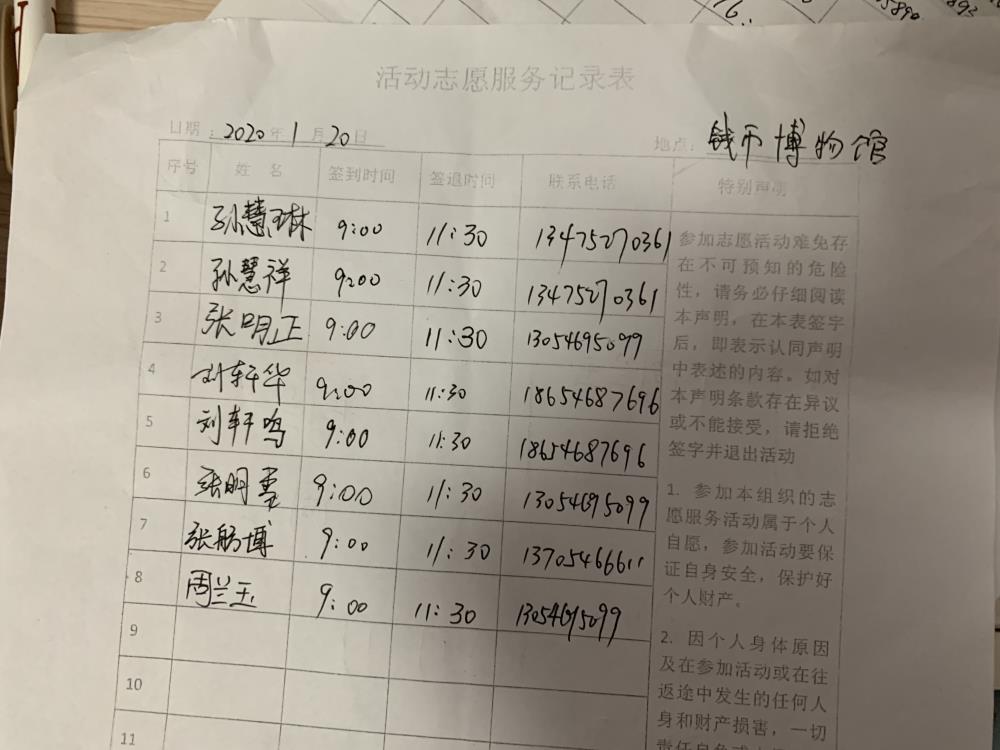 活动志愿服务记录表
日期：2020年1月20日 地点：钱币博物馆
序号 姓 名 签到时间 签退时间 联系电话 特别声明
1 孙慧琳 9:00 11:30 13475270361
2 孙慧祥 9:00 11:30 13475270361
3 张明正 9:00 11:30 13054695099
4 刘轩华 9:00 11:30 18654687696
5 刘轩鸣 9:00 11:30 18654687696
6 张明 9:00 11:30 13054695099
7 张舫博 9:00 11:30 13705466611
8 周兰玉 9:00 11:30 13054695099
9
10
11
参加志愿活动难免存
在不可预知的危险
性，请务必仔细阅读
本声明，在本表签字
后，即表示认同声明
中表述的内容。如对
本声明条款存在异议
或不能接受，请拒绝
签字并退出活动
1. 参加本组织的志
愿服务活动属于个人
自愿，参加活动要保
证自身安全，保护好
个人财产。
2. 因个人身体原因
及在参加活动或在往
返途中发生的任何人
身和财产损害，一切